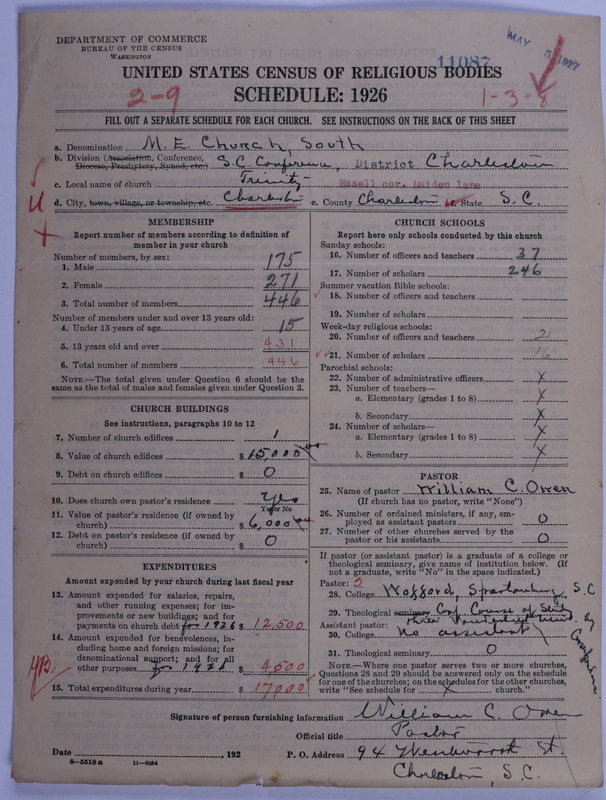 DEPARTMENT OF COMMERCE
BUREAU OF THE CENSUS
WASHINGTON
11087
MAY 5 1927
UNITED STATES CENSUS OF RELIGIOUS BODIES
2-9
SCHEDULE: 1926
1-3-8
FILL OUT A SEPARATE SCHEDULE FOR EACH CHURCH. SEE INSTRUCTIONS ON THE BACK OF THIS SHEET
a. Denomination M. E. Church, South
b. Division (Association, Conference, Diocese, Presbytery, Synod, etc.) S.C. Conference, District Charleston
c. Local name of church Trinity Hazell cor. Maiden lane
d. City, town, village, or township, etc. Charleston e. County Charleston State S. C.
MEMBERSHIP
Report number of members according to definition of
member in your church
Number of members, by sex:
1. Male 175
2. Female 271
3. Total number of members 446
Number of members under and over 13 years old:
4. Under 13 years of age 15
5. 13 years old and over 431
6. Total number of members 446
NOTE.—The total given under Question 6 should be the
same as the total of males and females given under Question 3.
CHURCH BUILDINGS
See instructions, paragraphs 10 to 12
7. Number of church edifices 1
8. Value of church edifices $15,000 00
9. Debt on church edifices $0
10. Does church own pastor's residence yes
Yes or No
11. Value of pastor's residence (if owned by
church) $6,000 00
12. Debt on pastor's residence (if owned by
church) $0
EXPENDITURES
Amount expended by your church during last fiscal year
13. Amount expended for salaries, repairs,
and other running expenses; for im-
provements or new buildings; and for
payments on church debt for 1926 $12,500
14. Amount expended for benevolences, in-
cluding home and foreign missions; for
denominational support; and for all
other purposes for 1926 $4,500
15. Total expenditures during year $17,000
CHURCH SCHOOLS
Report here only schools conducted by this church
Sunday schools:
16. Number of officers and teachers 37
17. Number of scholars 246
Summer vacation Bible schools:
18. Number of officers and teachers
19. Number of scholars
Week-day religious schools:
20. Number of officers and teachers 21
21. Number of scholars 16
Parochial schools:
22. Number of administrative officers X
23. Number of teachers—
a. Elementary (grades 1 to 8) X
b. Secondary X
24. Number of scholars—
a. Elementary (grades 1 to 8) X
b. Secondary X
PASTOR
25. Name of pastor William C. Owen
(If church has no pastor, write "None")
26. Number of ordained ministers, if any, em-
ployed as assistant pastors 0
27. Number of other churches served by the
pastor or his assistants 0
If pastor (or assistant pastor) is a graduate of a college or
theological seminary, give name of institution below. (If
not a graduate, write "No" in the space indicated.)
Pastor: 2
28. College Wofford, Spartanburg, S.C
29. Theological seminary Conf. Course of Study
Assistant pastor: by
30. College no assistant
31. Theological seminary 0
NOTE.—Where one pastor serves two or more churches,
Questions 28 and 29 should be answered only on the schedule
for one of the churches; on the schedules for the other churches,
write "See schedule for X church."
Signature of person furnishing information William C. Owen
Official title Pastor
Date , 192 P. O. Address 94 Wentworth St.
8-5518 a 11-9034
Charleston, S.C.